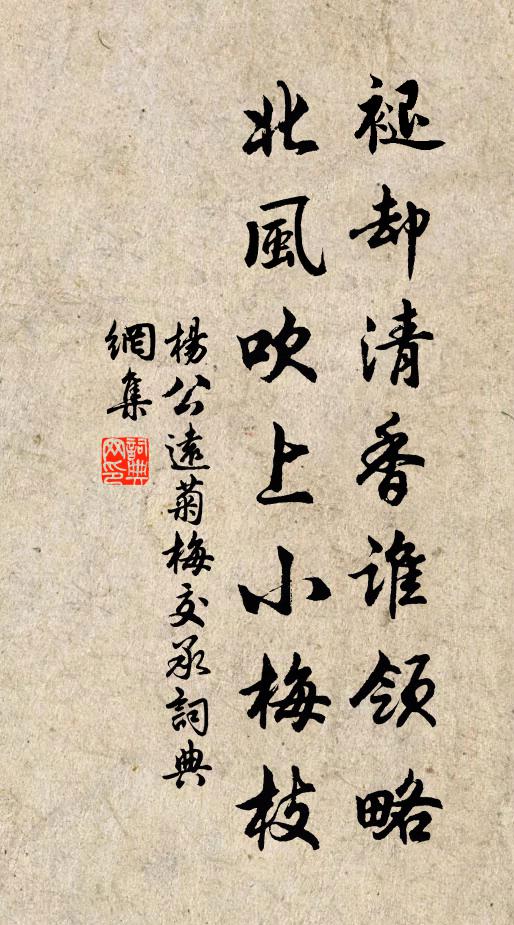 褪却清香誰領略
北風吹上小梅枝
楊公遠菊梅交承詞典
網集
詞典
网印